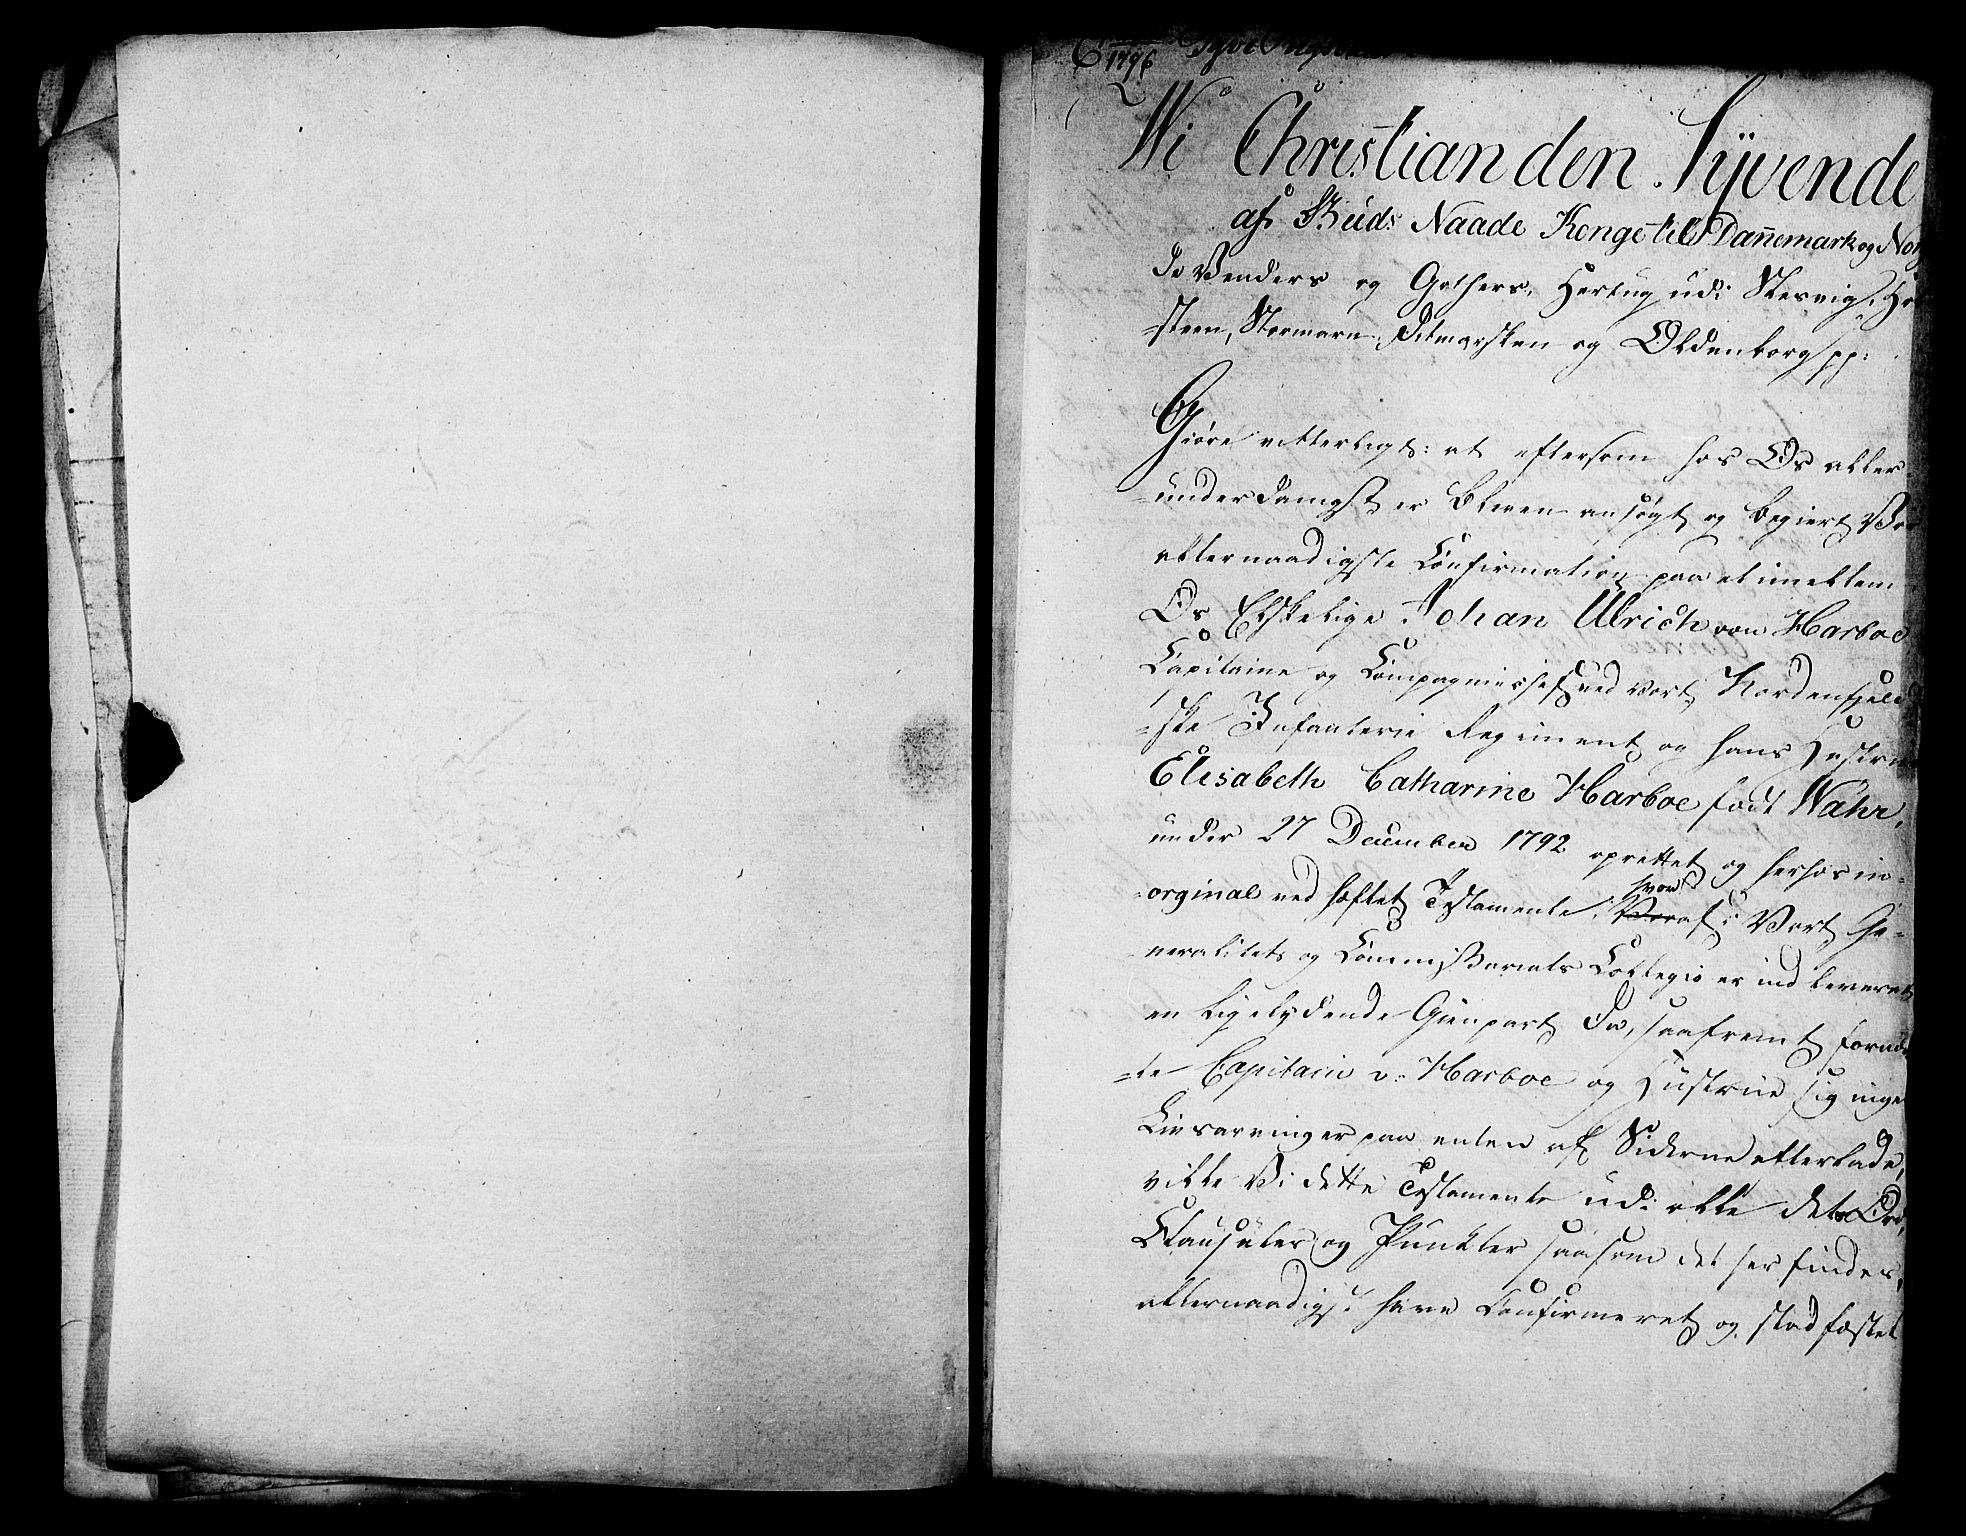 1796
Wi Christian den Syvende
af Guds Naade Konge til Dannemark og Nor
de Venders og Gothers, Hertug udi Slesvig, Hol
=steen, Stormarn, Ditmarsken og Oldenborg pp:
Giöre vitterligt: at eftersom hos Os aller-
=underdanigst er bleven ansøgt og begiert Vor
allernaadigste Confirmation paa et imellem
Os Elskelige Johan Ulrich von Harboe
Capitaine og Compagniechef ved vort Nordenfjeld
=ske Infanterie Regiment og hans Hustrue
Elisabeth Catharine Harboe født Wahr,
under 27 December 1792 oprettet og herhos in-
=orginal ved hæftet Testamente, hvoraf i Vort Ge-
neralitets og Commissariats Collegio er indleveret
en ligelydende Gienpart Da, saafremt formel
=te Capitain v: Harboe og Hustrue sig inge
Livsarvinger paa enten af Siderne efterlade,
ville Vi dette Testamente udi alle dets Ord,
Clausuler og Punkter saasom det her findes,
allernaadigst have Confirmeret og stadfæstet